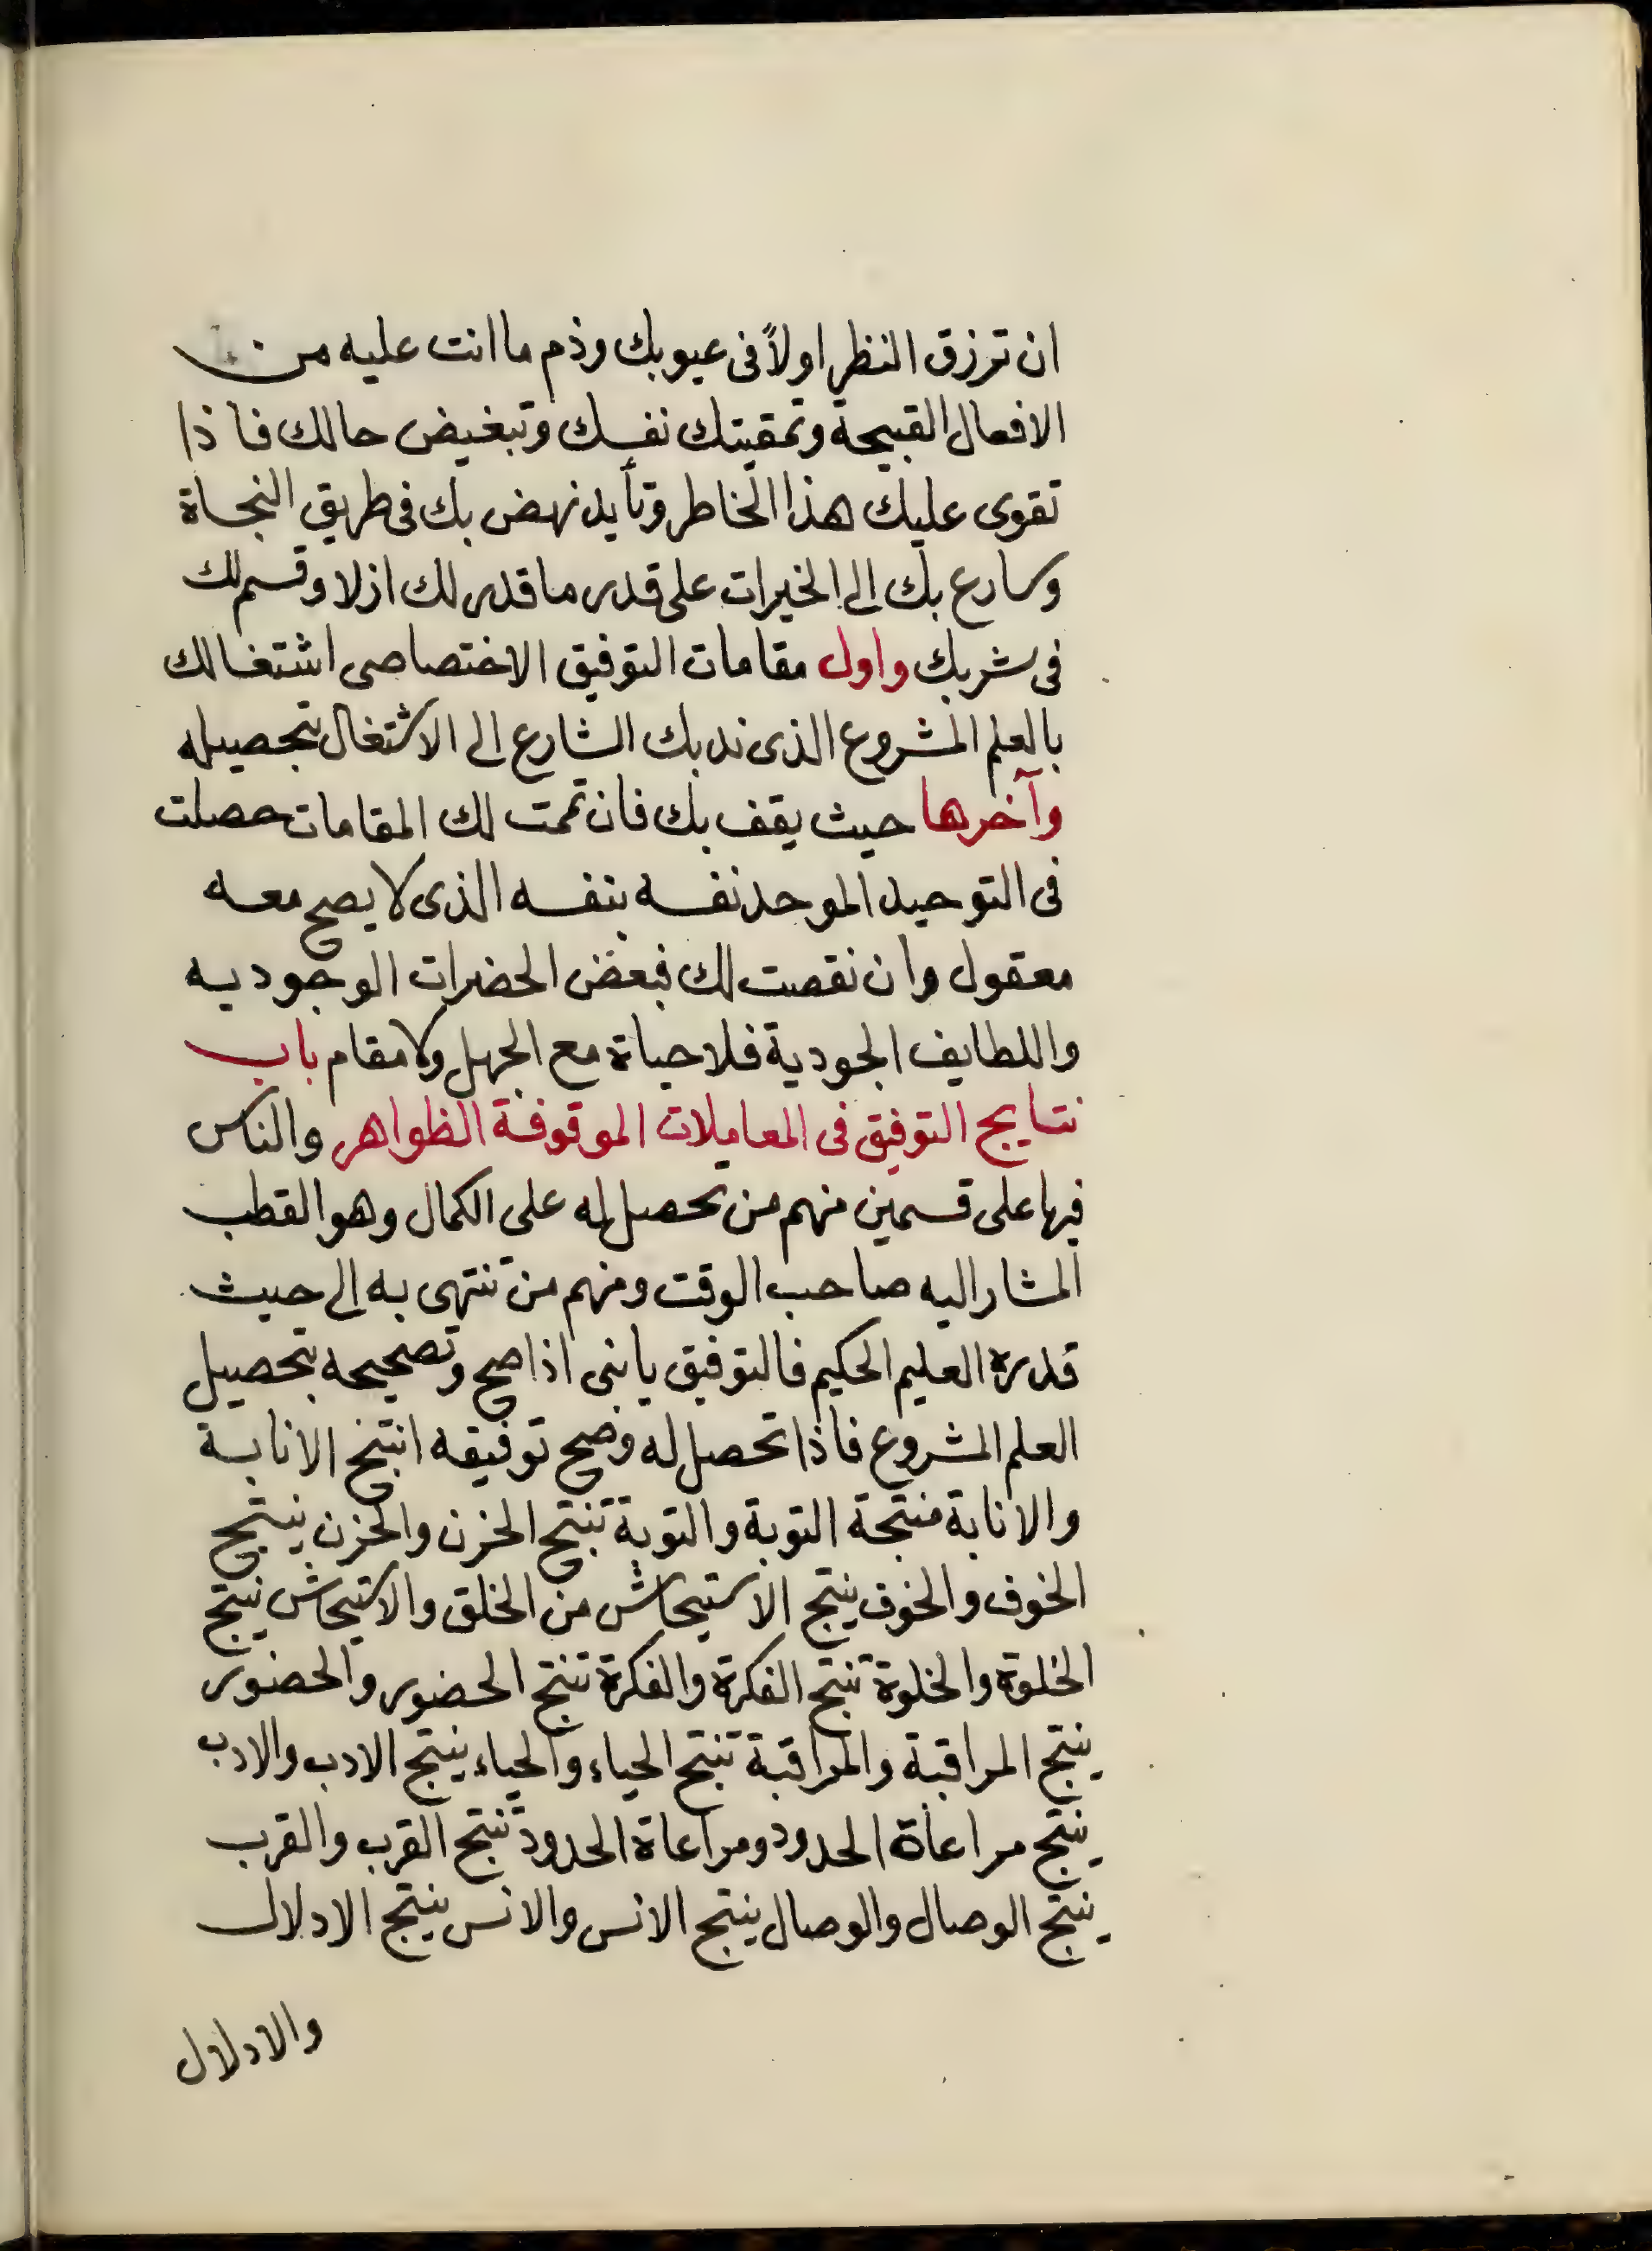 ان ترزق النظر اولاً فى عيوبك وذم ما انت عليه من
الافعال القبيحة وتمقيتك نفسك وتبغيض حالك فاذا
تقوى عليك هذا الخاطر وتأيد نهض بك فى طريق النجاة
وسارع بك الى الخيرات على قدر ما قدر لك ازلا وقسم لك
فى شربك واول مقامات التوفيق الاختصاصى اشتغالك
بالعلم المشروع الذى ندبك الشارع الى الاشتغال بتحصيله
وآخرها حيث يقف بك فان تمت لك المقامات حصلت
فى التوحيد الموحد نفسه بنفسه الذى لا يصح معه
معقول وان نقصت لك فبعض الحضرات الوجوديه
واللطايف الجودية فلا حياة مع الجهل ولا مقام باب
نتايج التوفيق فى المعاملات الموقوفة الظواهر والناس
فيها على قسمين منهم من تحصل له على الكمال وهو القطب
المشار اليه صاحب الوقت ومنهم من تنتهى به الى حيث
قدره العليم الحكيم فالتوفيق يا بنى اذا صح وتصحيحه بتحصيل
العلم المشروع فاذا تحصل له وصح توفيقه انتج الانابة
والانابة منتجة التوبة والتوبة تنتج الحزن والحزن ينتج
الخوف والخوف ينتج الاستيحاش من الخلق والاستيحاش ينتج
الخلوة والخلوة تنتج الفكرة والفكرة تنتج الحضور والحضور
ينتج المراقبة والمراقبة تنتج الحياء والحياء ينتج الادب والادب
ينتج مراعاة الحدود ومراعاة الحدود تنتج القرب والقرب
ينتج الوصال والوصال ينتج الانس والانس ينتج الادلال
والادلال